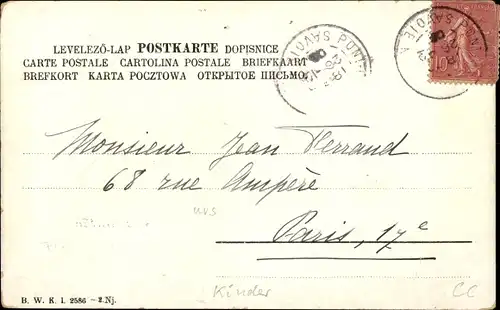 LEVELEZŐ-LAP POSTKARTE DOPISNICE
CARTE POSTALE CARTOLINA POSTALE BRIEFKAART
BREFKORT KARTA POCZTOWA ОТКРЫТОЕ ПИСЬМО
10
Monsieur Jean Ferrand
68 rue Ampère
uvs
Paris, 17e
B. W. K. I. 2586 – 2. Nj.
Kinder
CC